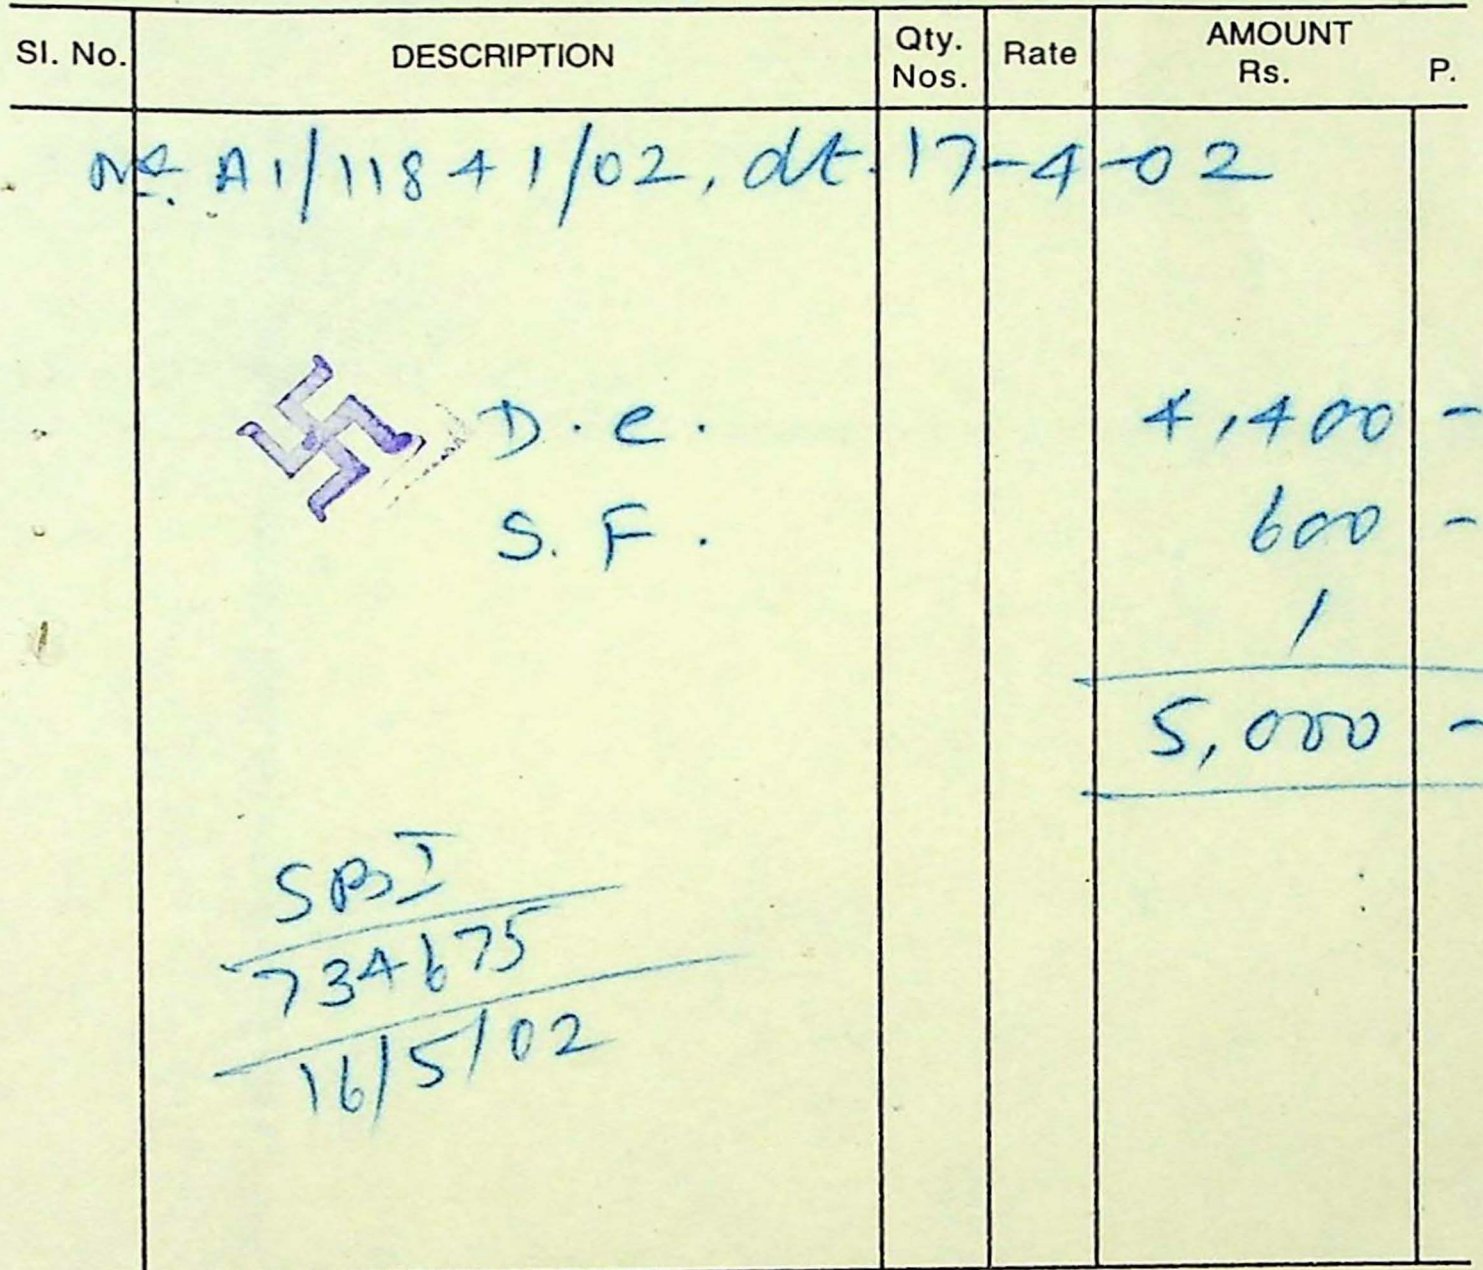 Sl. No. DESCRIPTION Qty. Nos. Rate AMOUNT Rs. P.
No. A1/11841/02, dt. 17-4-02
D.C. 4,400 -
S.F. 600 -
/
5,000 -
SBI
734675
16/5/02